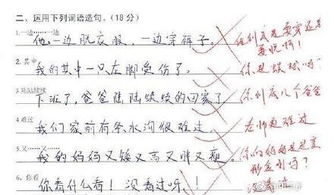 二、运用下列词语造句。(18分)
1.一边……一边
他一边脱衣服，一边穿裤子。
你到底是要穿还是要脱啊！
2.其中
我的其中一只左脚受伤了。
你是蜈蚣吗？
3.陆陆续续
下班了，爸爸陆陆续续的回家了
你到底几个爸爸
4.难过
我们家前有条水沟很难过。
老师更难过
5.又……又……
我的妈妈又矮又高又胖又瘦。
你的妈妈是变形金刚吗？
6.你看
你看什么看！没看过呀！
没看过